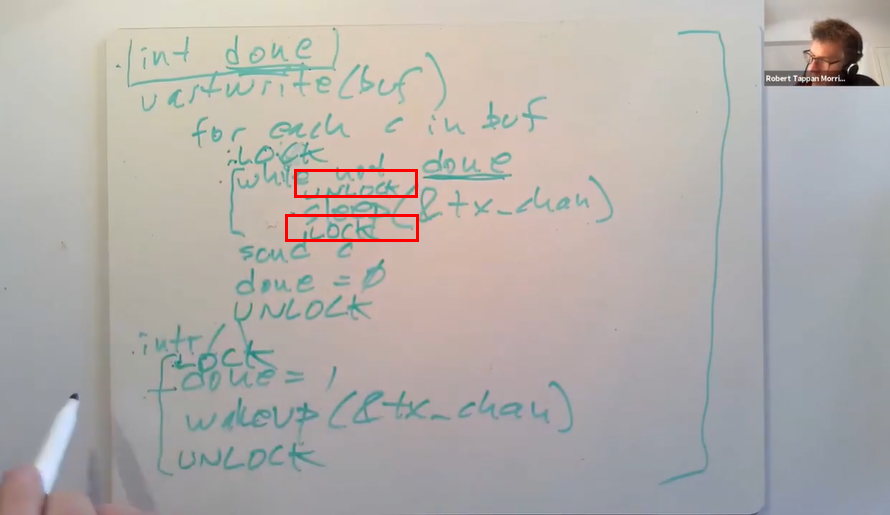 int done
uartwrite(buf)
for each c in buf
LOCK
while not done
UNLOCK
sleep(&tx_chan)
LOCK
send c
done = 0
UNLOCK
intr
LOCK
done = 1
wakeup(&tx_chan)
UNLOCK
Robert Tappan Morri...